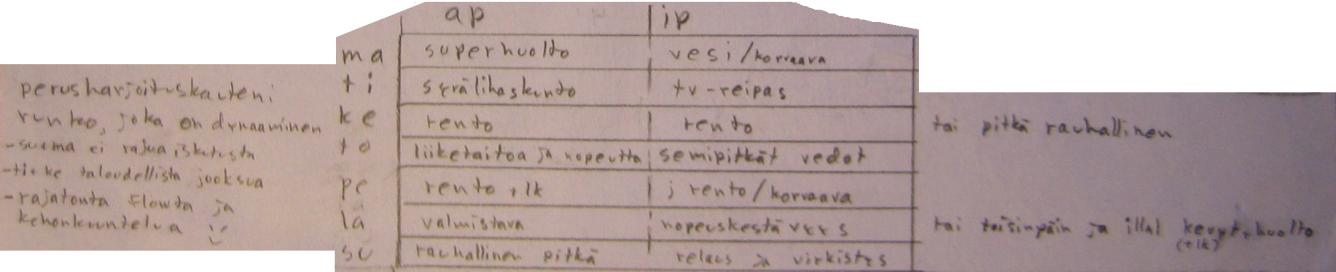 ap ip
ma superhuolto vesi/korvaava
perusharjoituskauteni
ti syvälihaskunto tv-reipas
runko, joka on dynaaminen
ke rento rento tai pitkä rauhallinen
to liiketaitoa ja nopeutta semipitkät vedot
-suoma ei rajua iskutusta
taloudellista juoksua
pe rento + lk rento/korvaava
-rajatonta flowta ja
kehonkuuntelua :)
la valmistava nopeuskestävyys tai toisinpäin ja illal kevyt+huolto
(+lk)
su rauhallinen pitkä relaus ja virkistys